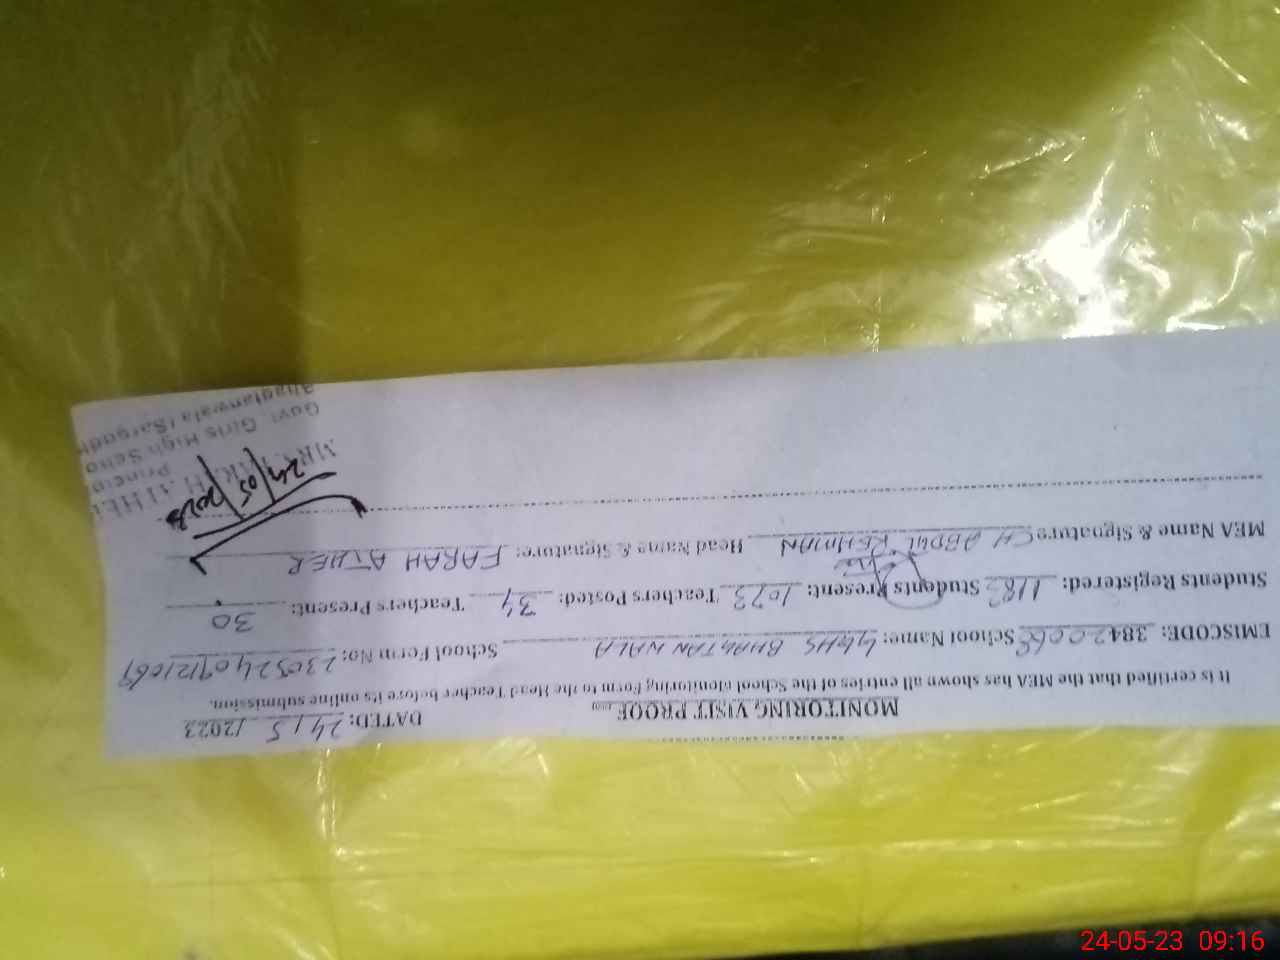 MONITORING VISIT PROOF
DATED: 24/5/2023
It is certified that the MEA has shown all entries of the School Monitoring Form to the Head Teacher before its online submission.
EMISCODE: 38420068 School Name: GGHS BHAGTANWALA School Form No: 
Students Registered: Students Present: 1073 Teachers Posted: 34 Teachers Present: 30
MEA Name & Signature CH ABDUL REHMAN Head Name & Signature: FARAH ATHER
24/05/2023
Princip
Govt. Girls High Schoo
Bhagtanwala (Sargodh
24-05-23 09:16